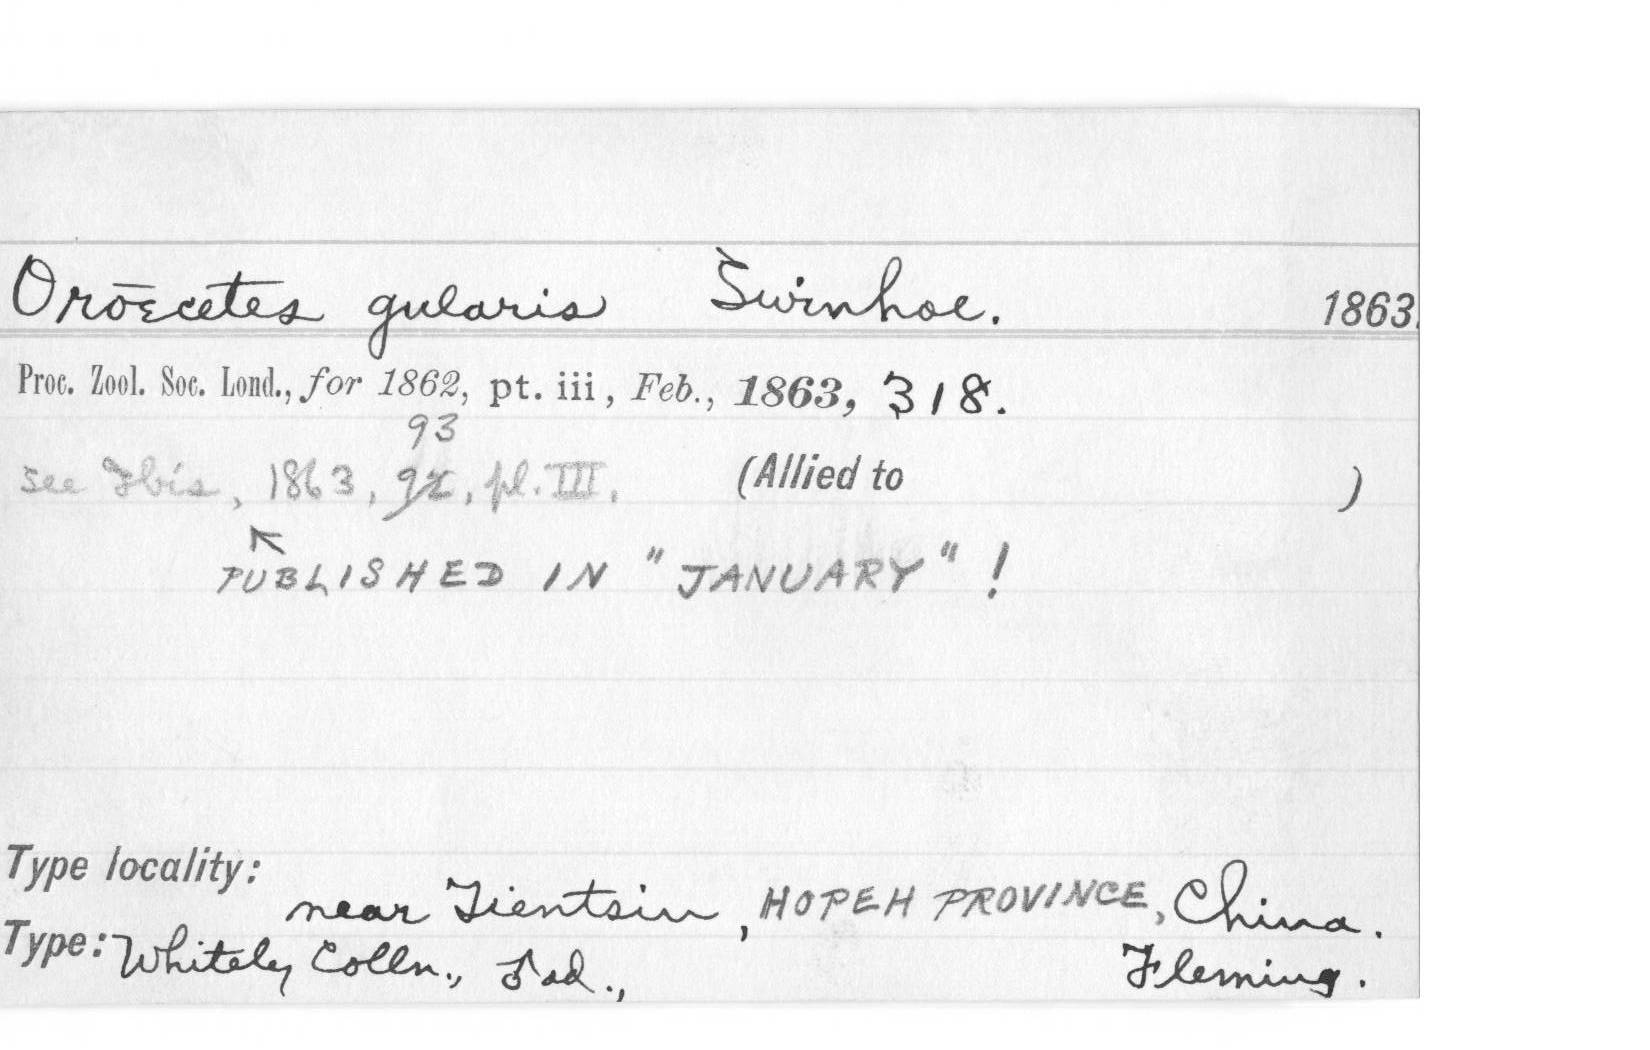 Oroecetes gularis Swinhoe. 1863.
Proc. Zool. Soc. Lond., for 1862, pt. iii, Feb., 1863, 318.
93
see Ibis, 1863, 92, pl. III. (Allied to )
↖
PUBLISHED IN "JANUARY" !
Type locality:
near Tientsin, HOPEH PROVINCE, China.
Type: Whitely Colln., ad., Fleming.